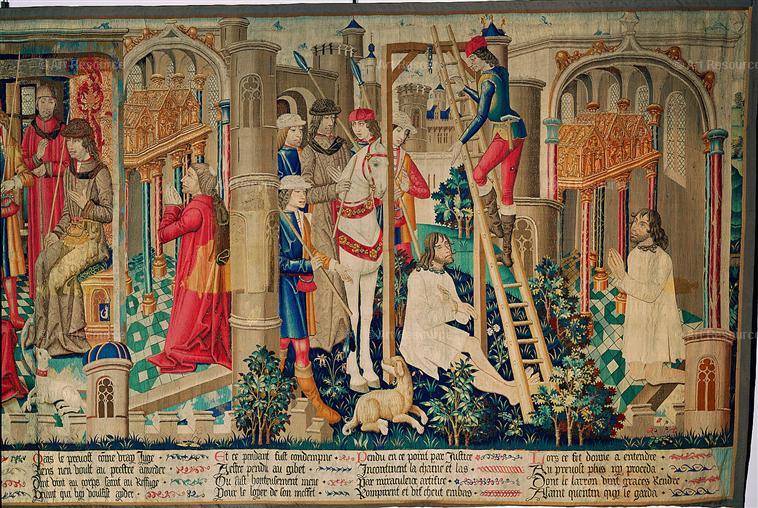 Mais le prevost come vray Juge
Riens nen voult au prestre amender
Dont vint au corps saint au Reffuge
Priant qui luy voulsist ayder
Et ce pendant fust condempne
A estre pendu au gibet
Ou fust honteusement mene
Pour le loyer de son meffet
Pendu en ce point par Justice
Incontinent la chaine et las
Par miraculeux artifice
Rompirent et dit cheut embas
Lors ce fet donne a entendre
Au prevost plus ny proceda
Dont le larron vint graces Rendre
A saint quentin qui le garda
© Art Resource